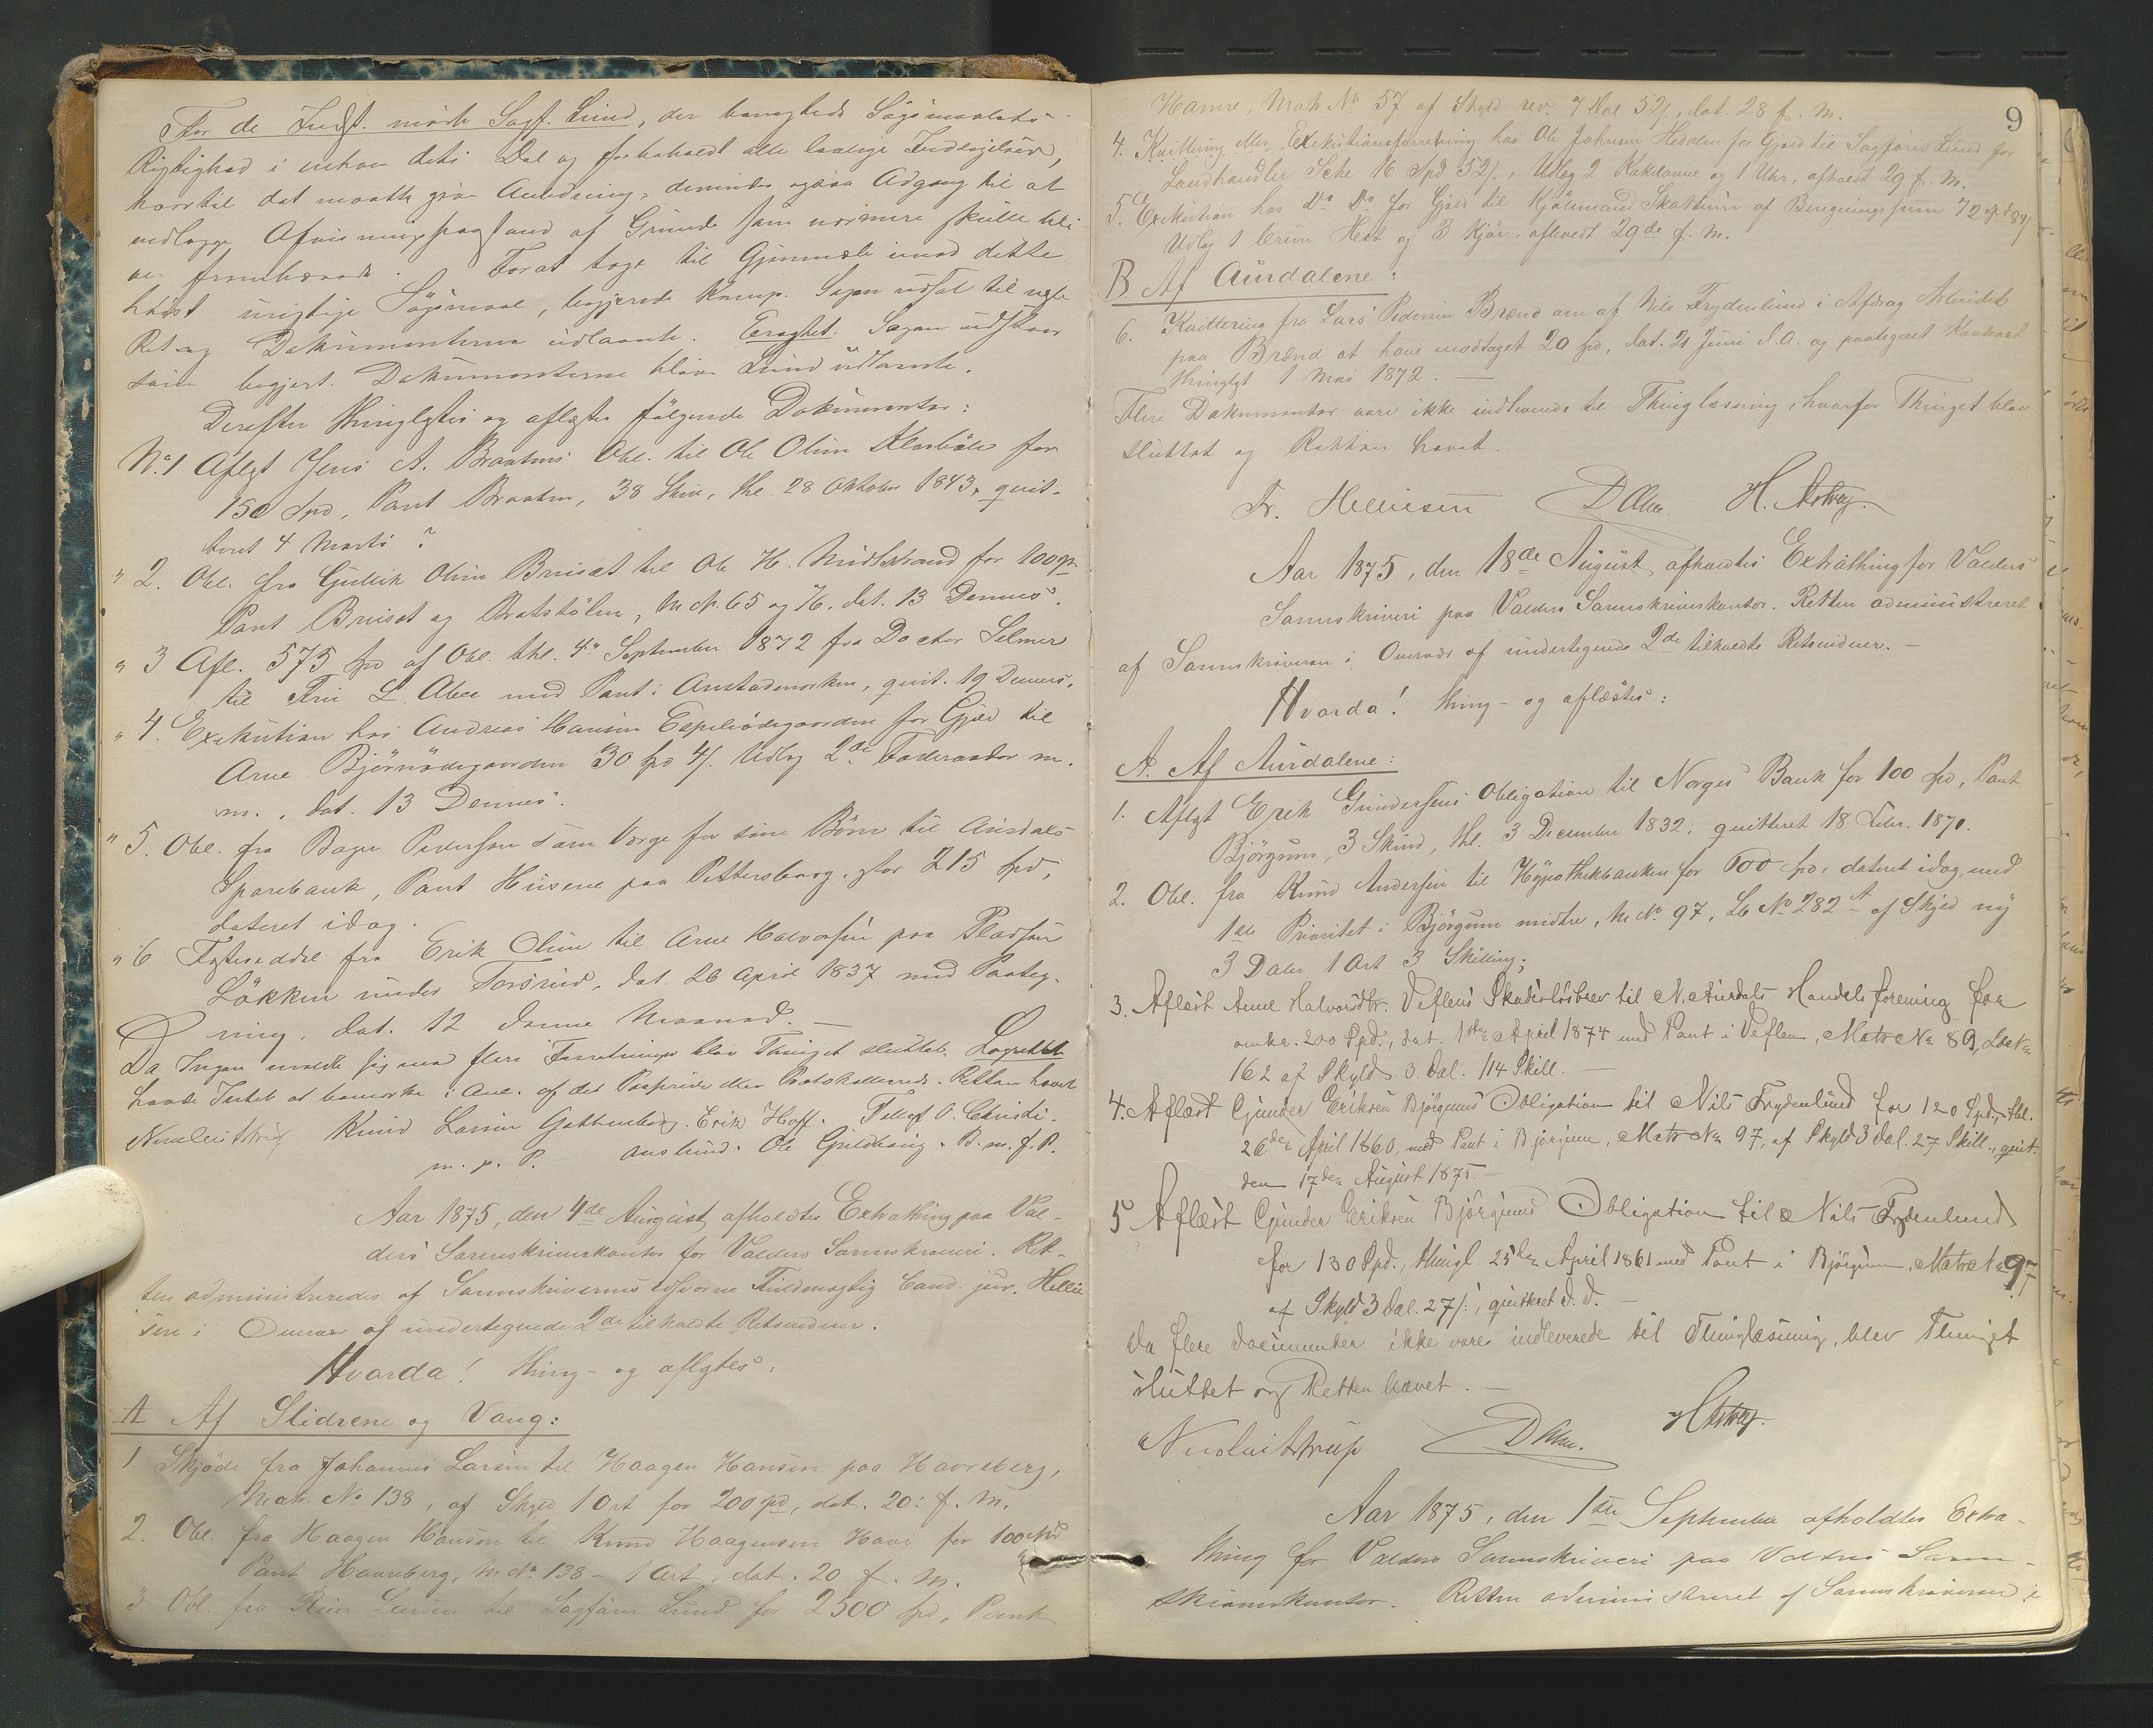 For de Indst. mødte Sagf. Lund, der benegtede Søgsmaalets
Rigtighed i enhver dets Del og forbeholdt alle lovlige Indsigelser,
hvortil det maatte give Anledning, desuden ogsaa Adgang til at
nedlægge Afvisningspaastand af Grunde som nærmere skulle bli-
ve fremsatte. For at tage til Gjenmæle imod dette
høist urigtige Søgsmaal, begjerede Komp. Sagen udsat til næste
Ret og Dokumenterne udlaante. Eragtet. Sagen udstaar
som begjert. Dokumenterne blev Lund udlaante.
Derefter thinglystes og aflystes følgende Dokumenter:
No 1 Aflyst Jens A. Braatens Obl. til Ole Olsen for
150 Spd, Pant Braaten, 38 Skill, thl. 28 Oktober 1843, qvit-
teret 4 Marts
" 2. Obl. fra Gullik Olsen Bruset til Ole H. Midtstrand for 100 Spd
Pant Bruset og Bratstølen, M. No 65 og 76, dat. 13 Dennes.
" 3 Afl. 575 Spd af Obl. thl. 4de September 1872 fra Doctor Selmer
til Fru L. Abel med Pant i , qvit. 19 Dennes.
" 4. Exekution hos Andreas Hansen for Gjæld til
Arne Bjørnødegaarden 30 Spd 4/. Udlæg 2de Foderaader m.
m., dat. 13 Dennes.
" 5. Obl. fra Pedersen som Værge for sine Børn til Aurdals
Sparebank, Pant Husene paa Pettersborg, for 215 Spd,
dateret idag.
" 6 Fæsteseddel fra Erik Olsen til Arne Halvorsen paa Pladsen
Løkken under , dat. 26 April 1837 med Paateg-
ning, dat. 12 denne Maaned. —
Da Ingen meldte sig med flere Forretninger blev Thinget sluttet. Lagrettet
havde Intet at bemærke i Anl. af det Passerede eller Protokollerede. Retten hævet
Nicolai Strup Knud Larsen Erik Hoff. Tollef O. Christi-
m. p. P. anslund. Ole . m. f. P.
Aar 1875, den 4de August afholdtes Extrathing paa Val-
ders Sorenskriverkontor for Valders Sorenskriveri. Ret-
ten administreredes af Sorenskriverens edsvorne Fuldmægtig Cand. jur. Hellie-
sen i Overvær af undertegnede 2de tilkaldte Retsvidner.
Hvorda! thing- og aflystes:
A Af Slidrene og Vang:
1. Skjøde fra Johannes Larsen til Haagen Hansen paa Havreberg,
Matr. No 138, af Skyld 1 Ort for 200 Spd, dat. 20: f. M.
2. Obl. fra Haagen Hansen til Knud Haagensen for 100 Spd
Pant Havreberg, M. No 138 - 1 Ort, dat. 20 f. M.
3 Obl. fra Larsen til Sagfører Lund for 2500 Spd, Pant
9
Hamre, Matr No 57 af Skyld rev. 7 Dal 52/., dat. 28 f. M.
4. Kvittering eller Exekutionsforretning hos Ole Johnsen for Gjæld til Sagfører Lund for
Landhandler 16 Spd 52/., Udlæg 2 Kakelovne og 1 Uhr, afholdt 29 f. M.
5. Exekution hos Do Do for Gjæld til Kjøbmand af Beregningssum 72 Spd 84/
Udlæg 1 brun Hest og 3 Kjør, afholdt 29de f. M.
B. Af Aurdalene:
6. Kvittering fra Lars Pedersen Brænd om af Nils Frydenlund i Afdrag Arbeidet
paa Brænd at have modtaget 20 Spd, dat. 21 Juni d. A. og paategnet Kontract
thinglyst 1 Mai 1872. —
Flere Dokumenter vare ikke indleverede til Thinglæsning, hvorfor Thinget blev
sluttet og Retten hævet.
Fr. Helliesen D H. Astrup.
Aar 1875, den 18de August afholdtes Extrathing for Valders
Sorenskriveri paa Valders Sorenskriverkontor. Retten administreret
af Sorenskriveren i Overvær af undertegnede 2de tilkaldte Retsvidner. —
Hvorda! thing- og aflæstes:
A. Af Aurdalene:
1. Aflyst Erik Gundersens Obligation til Norges Bank for 100 Spd, Pant
Bjørgum, 3 Skind, thl. 3 December 1832, qvitteret 18 Febr. 1870.
2. Obl. fra Knud Andersen til Hypothekbanken for 600 Spd, dateret idag, med
1ste Prioritet i Bjørgum midtre, M. No 97, Lb No 282 A af Skyld ny
3 Daler 1 Ort 3 Skilling;
3. Aflæst Anne Halvorsdtr. Veflens Skadesløsbrev til N. Aurdals Handelsforening for
omkr. 200 Spd., dat. 1ste April 1874 med Pant i Veflen, Matr No 89, Lb No
162 af Skyld 3. Dal. 114 Skill. —
4. Aflæst Gunder Eriksen Bjørgums Obligation til Nils Frydenlund for 120 Spd., thl.
26de April 1860, med Pant i Bjørgum, Matr No 97, af Skyld 3 Dal. 27 Skill., qvit.
den 17de August 1875. —
5 Aflæst Gunder Eriksen Bjørgums Obligation til Nils Frydenlund
for 130 Spd., thingl. 25de April 1861 med Pant i Bjørgum, Matr No 97
af Skyld 3 Dal. 27/., qvitteret d. d. —
Da flere Documenter ikke vare indleverede til Thinglæsning, blev Thinget
sluttet og Retten hævet. —
Nicolai Strup D H Astrup.
Aar 1875, den 1ste September afholdtes Extra-
thing for Valders Sorenskriveri paa Valders Soren-
skriverkontor. Retten administreret af Sorenskriveren i